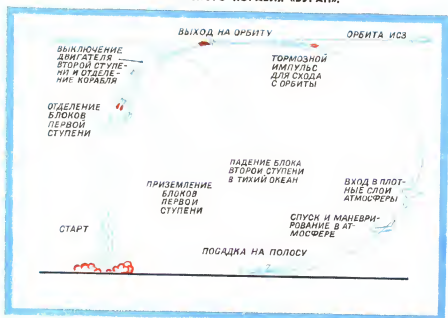 «БУРАН».
ВЫХОД НА ОРБИТУ
ОРБИТА ИСЗ
ВЫКЛЮЧЕНИЕ
ДВИГАТЕЛЯ
ВТОРОЙ СТУПЕ-
НИ И ОТДЕЛЕ-
НИЕ КОРАБЛЯ
ТОРМОЗНОЙ
ИМПУЛЬС
ДЛЯ СХОДА
С ОРБИТЫ
ОТДЕЛЕНИЕ
БЛОКОВ
ПЕРВОЙ
СТУПЕНИ
ПАДЕНИЕ БЛОКА
ВТОРОЙ СТУПЕНИ
В ТИХИЙ ОКЕАН
ПРИЗЕМЛЕНИЕ
БЛОКОВ
ПЕРВОЙ
СТУПЕНИ
ВХОД В ПЛОТ-
НЫЕ СЛОИ
АТМОСФЕРЫ
СПУСК И МАНЕВРИ-
РОВАНИЕ В АТ-
МОСФЕРЕ
СТАРТ
ПОСАДКА НА ПОЛОСУ